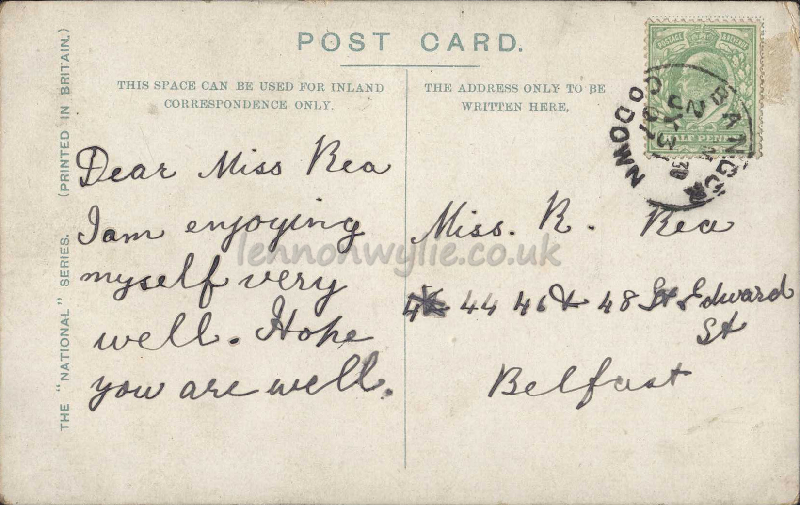 POST CARD.
THIS SPACE CAN BE USED FOR INLAND
CORRESPONDENCE ONLY.
THE ADDRESS ONLY TO BE
WRITTEN HERE.
THE "NATIONAL" SERIES. (PRINTED IN BRITAIN.)
Dear Miss Rea
I am enjoying
myself very
well. Hope
you are well.
Miss. R. Rea
44 46 & 48 St Edward
St
Belfast
POSTAGE & REVENUE
HALF PENNY
BANGOR
CO DOWN
lennonwylie.co.uk